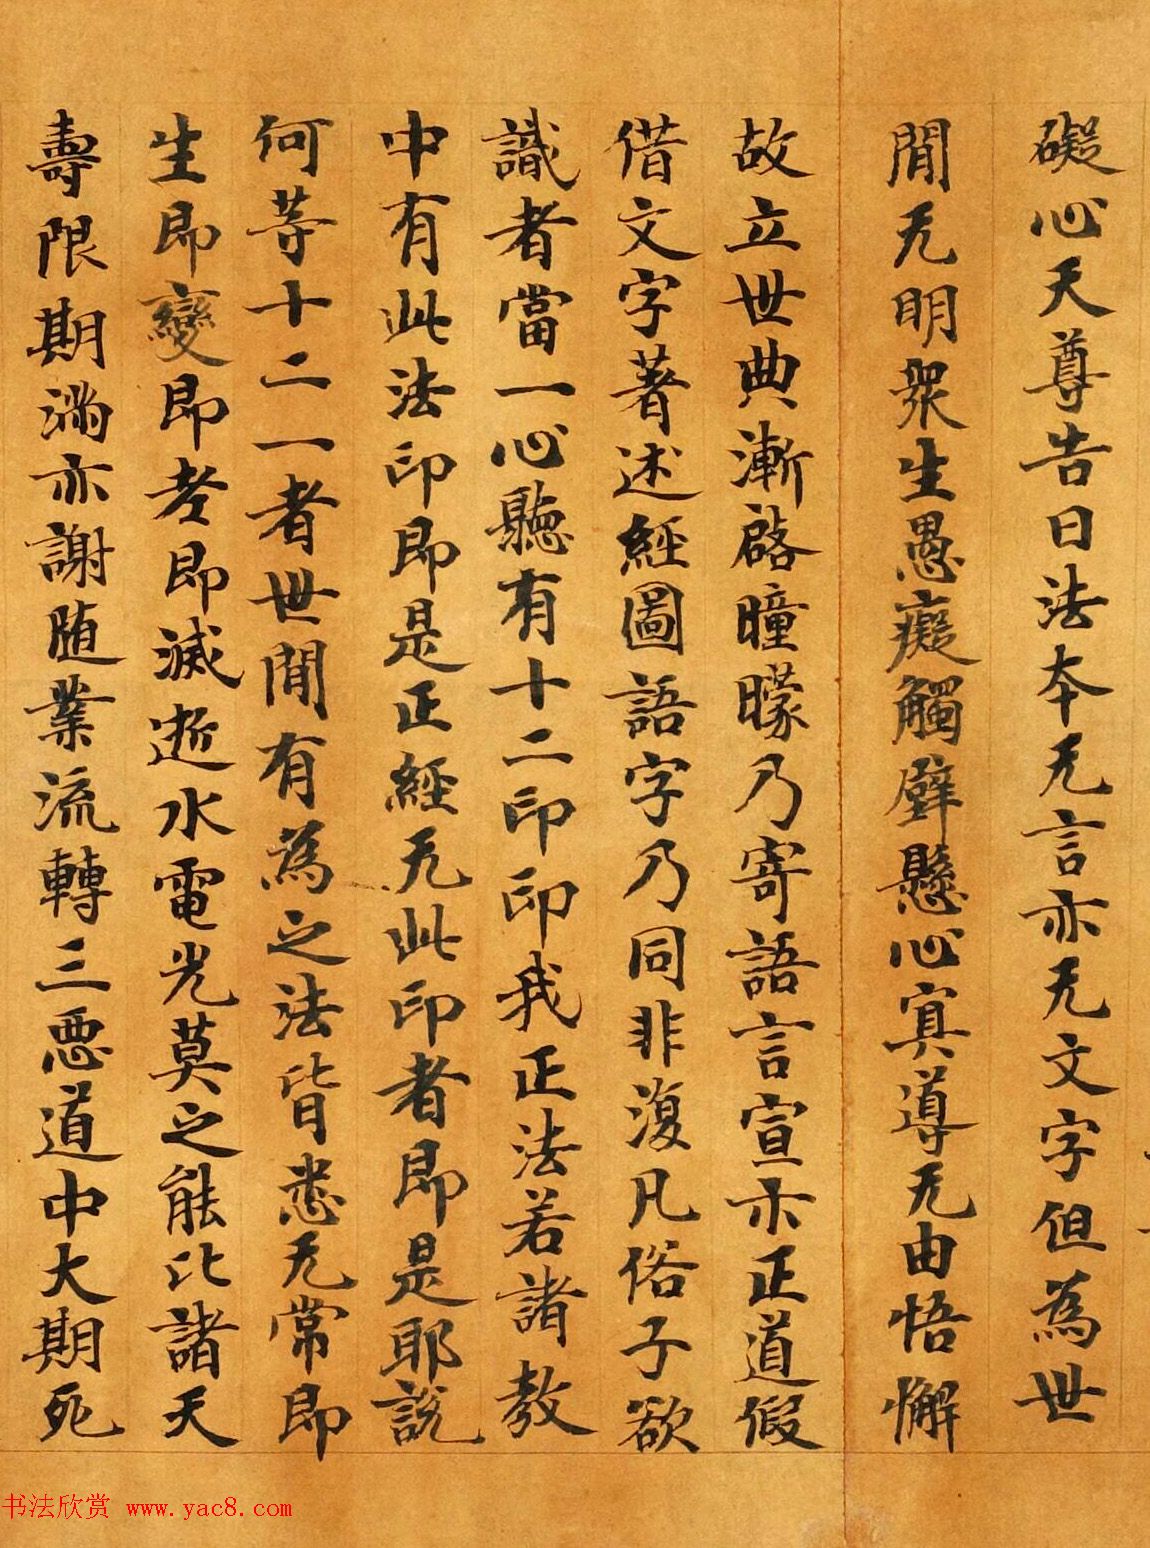 礙心天尊告曰法本无言亦无文字但為世
間无明眾生愚癡觸壁懸心寘導无由悟懈
故立世典漸啓曈曚乃寄語言宣示正道假
借文字著述經圖語字乃同非復凡俗子欲
識者當一心聽有十二印印我正法若諸教
中有此法印即是正經无此印者即是耶說
何等十二一者世間有為之法皆悉无常即
生即變即老即滅逝水電光莫之能比諸天
壽限期滿亦謝随業流轉三惡道中大期死
书法欣赏 www.yac8.com